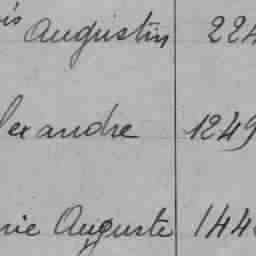 is Augustin 224
lexandre 1249
rie Auguste 144